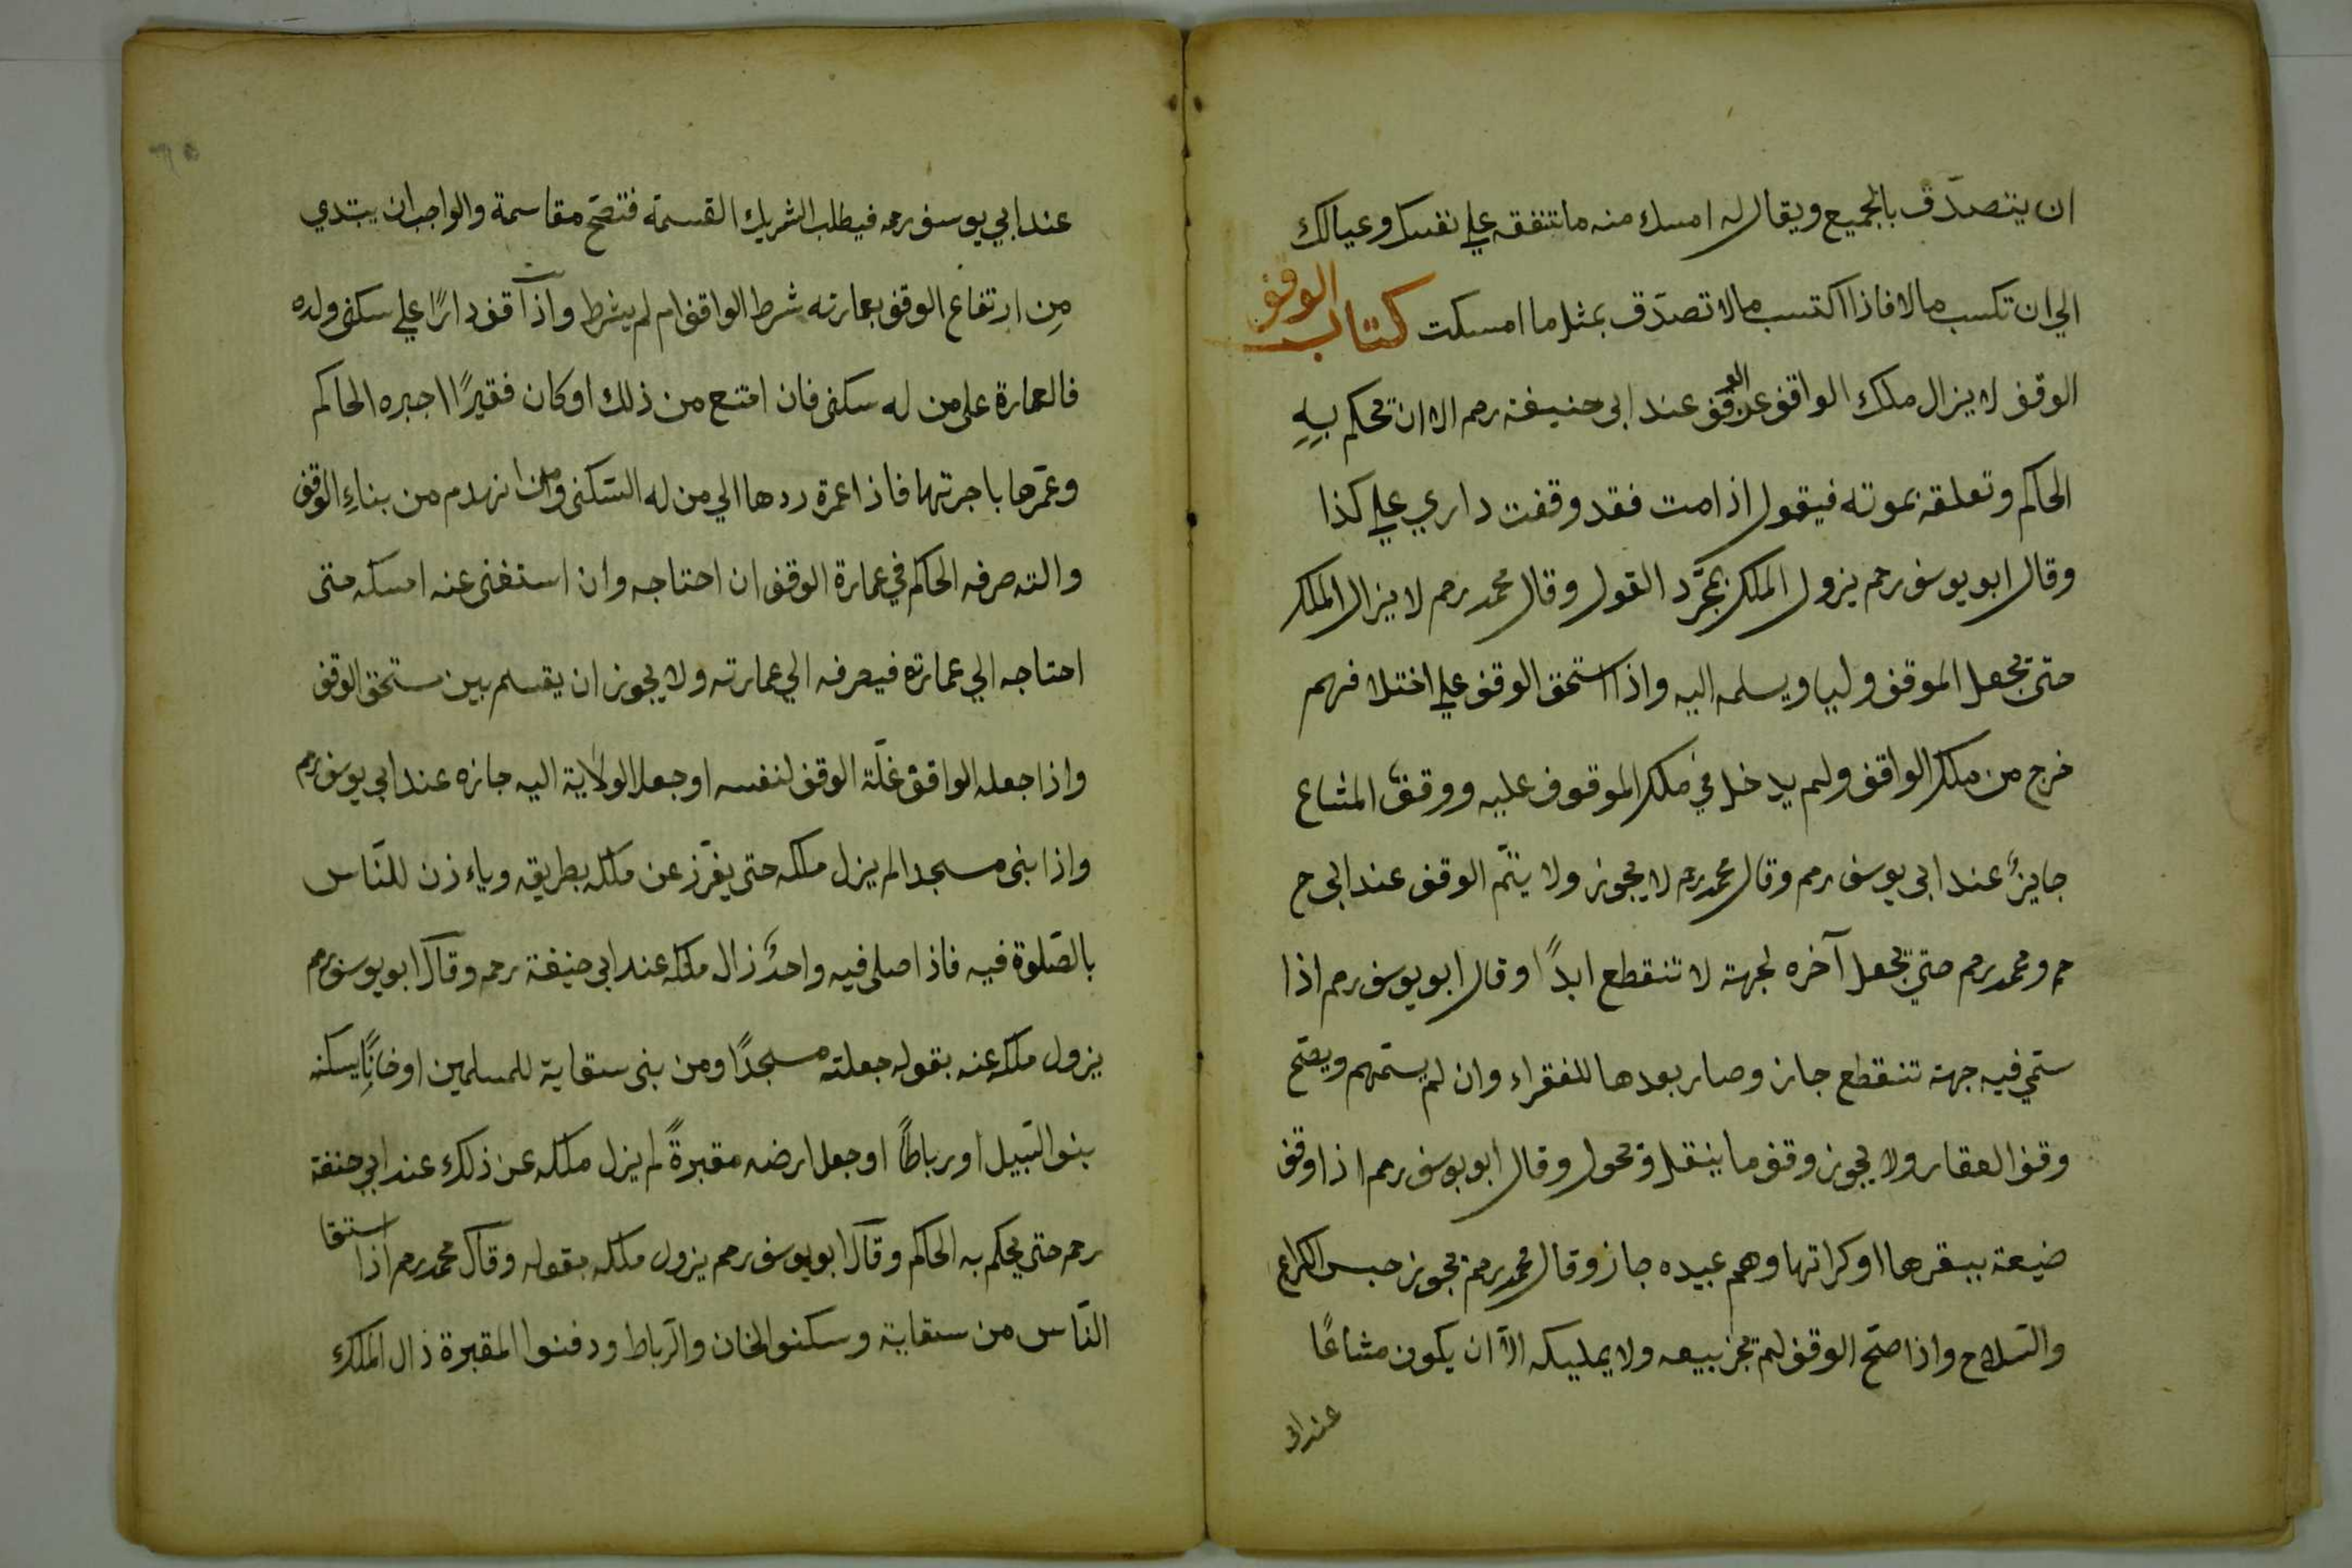 ان يتصدّق بالجميع ويقال له امسك منه ما تنفقه علي نفسك وعيالك
الي ان تكسب مالا فاذا اكتسب مالا تصدّق بمثل ما امسكت كتاب الوقف
الوقف لا يزال ملك الواقف عن الوقف عند ابى حنيفة رحم الا ان يحكم بهِ
الحاكم وتعلقه بموته فيقول اذا مت فقد وقفت داري علي كذا
وقال ابو يوسف رحم يزول الملك بمجرّد القول وقال محمد رحم لا يزال الملك
حتى يجعل الموقف وليا ويسلمه اليه واذا استحق الوقف علي اختلافهم
خرج من ملك الواقف ولم يدخل في ملك الموقوف عليه ووقف المشاع
جايزٌ عند ابى يوسف رحم وقال محمد رحم لا يجوز ولا يتمّ الوقف عند ابى ح
حم ومحمد رحم حتي يجعل آخره لجهة لا تنقطع ابدًا وقال ابو يوسف رحم اذا
سمّي فيه جهة تنقطع جاز وصار بعدها للفقراء وان لم يسمّهم ويصّح
وقف العقار ولا يجوز وقف ما ينقل وتحول وقال ابو يوسف رحم اذا وقف
ضيعة ببقرها او كراتها وهم عبيده جاز وقال محمد رحم يجوز حبس الكراع
والسّلاح واذا صحّ الوقف لم يجز بيعه ولا يمليكه الاّ ان يكون مشاعًا
عند ابى
عند ابي يوسف رحمه فيطلب الشريك القسمة فتصّح مقاسمة والواجب ان يبتدي
مِن ارتفاع الوقف بعمارته شرط الواقف ام لم يشرط واذا وقف دارًا علي سكنى ولده
فالعمارة على من له سكنى فان امتنع من ذلك او كان فقيرًا اجبره الحاكم
وعمّرها باجرتها فاذا عمرة ردها الي من له السّكنى وما انهدم من بناءِ الوقف
والته صرفه الحاكم في عمارة الوقف ان احتاجه وان استغنى عنه امسكه متى
احتاجه الي عمارته فيصرفه الي عمارته ولا يجوز ان يقسم بين مستحق الوقف
واذا جعله الواقف غلّة الوقف لنفسه او جعل الولاية اليه جازه عند ابي يوسف رحم
واذا بنى مسجدا لم يزل ملكه حتى يفرّز عن ملكه بطريقه وياءذن للنّاس
بالصّلوة فيه فاذا صلى فيه واحدٌ زال ملكه عند ابى حنيفة رحمه وقال ابو يوسف رحم
يزول ملكه عنه بقوله جعلته مسجدًا ومن بنى سقاية للمسلمين او خانًا يسكنه
بنو السّبيل او رباطًا او جعل ارضه مقبرةً لم يزل ملكه عن ذلك عند ابي حنفة
رحم حتى يحكم به الحاكم وقال ابو يوسف رحم يزول ملكه بقوله وقال محمد رحم اذا استقا
النّاس من سقاية وسكنو الخان والرّباط ودفنوا المقبرة زال الملك